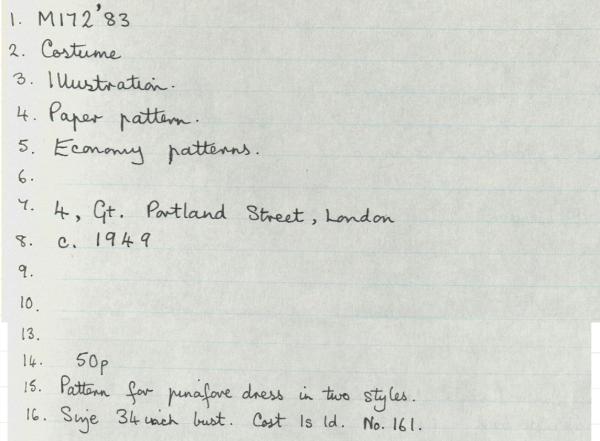 1. M172'83
2. Costume
3. Illustration.
4. Paper pattern.
5. Economy patterns.
6.
7. 4, Gt. Portland Street, London
8. c. 1949
9.
10.
13.
14. 50p
15. Pattern for pinafore dress in two styles.
16. Size 34 inch bust. Cost 1s 1d. No. 161.